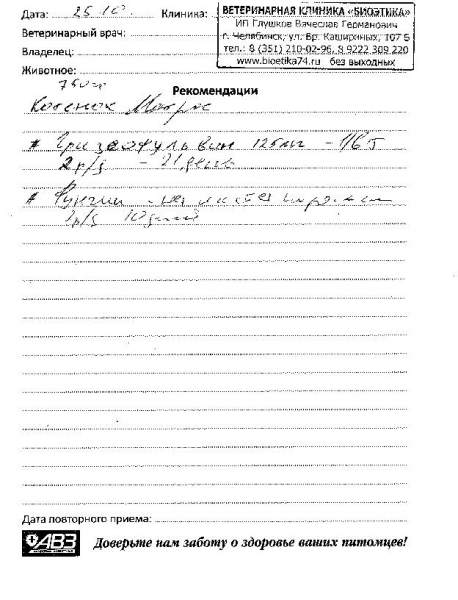 Дата: 25.10 Клиника:
ВЕТЕРИНАРНАЯ КЛИНИКА «БИОЭТИКА»
ИП Глушков Вячеслав Германович
г. Челябинск, ул. Бр. Кашириных, 107 Б
тел.: 8 (351) 210-02-96, 8 9222 309 220
www.bioetika74.ru без выходных
Ветеринарный врач:
Владелец:
Животное:
750гр
Рекомендации
Котенок Матрос
* Гризеофульвин 125мг -
2р/д - 21 день
* Фунгин - на места
2р/д 10 дней
Дата повторного приема:
АВЗ
Доверьте нам заботу о здоровье ваших питомцев!